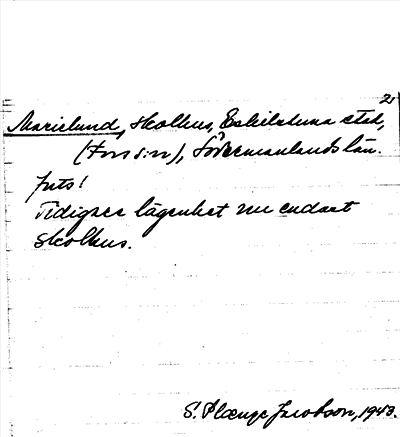 21
Marielund, skolhus, Eskilstuna stad,
(Fors s:n), Södermanlands län.
Juts!
Tidigare lägenhet nu endast
skolhus.
S. Plænge Jacobson, 1943.